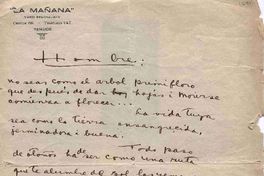 "LA MAÑANA"
TEMUCO
Hombre:
no seas como el arbol primifloro
que después de dar hojas i
comienza a florecer...
la vida tuya
sea como la tierra ensangrecida,
jerminadora i buena.
Todo paso
de otoños ha de ser como una ruta
que te alumbre